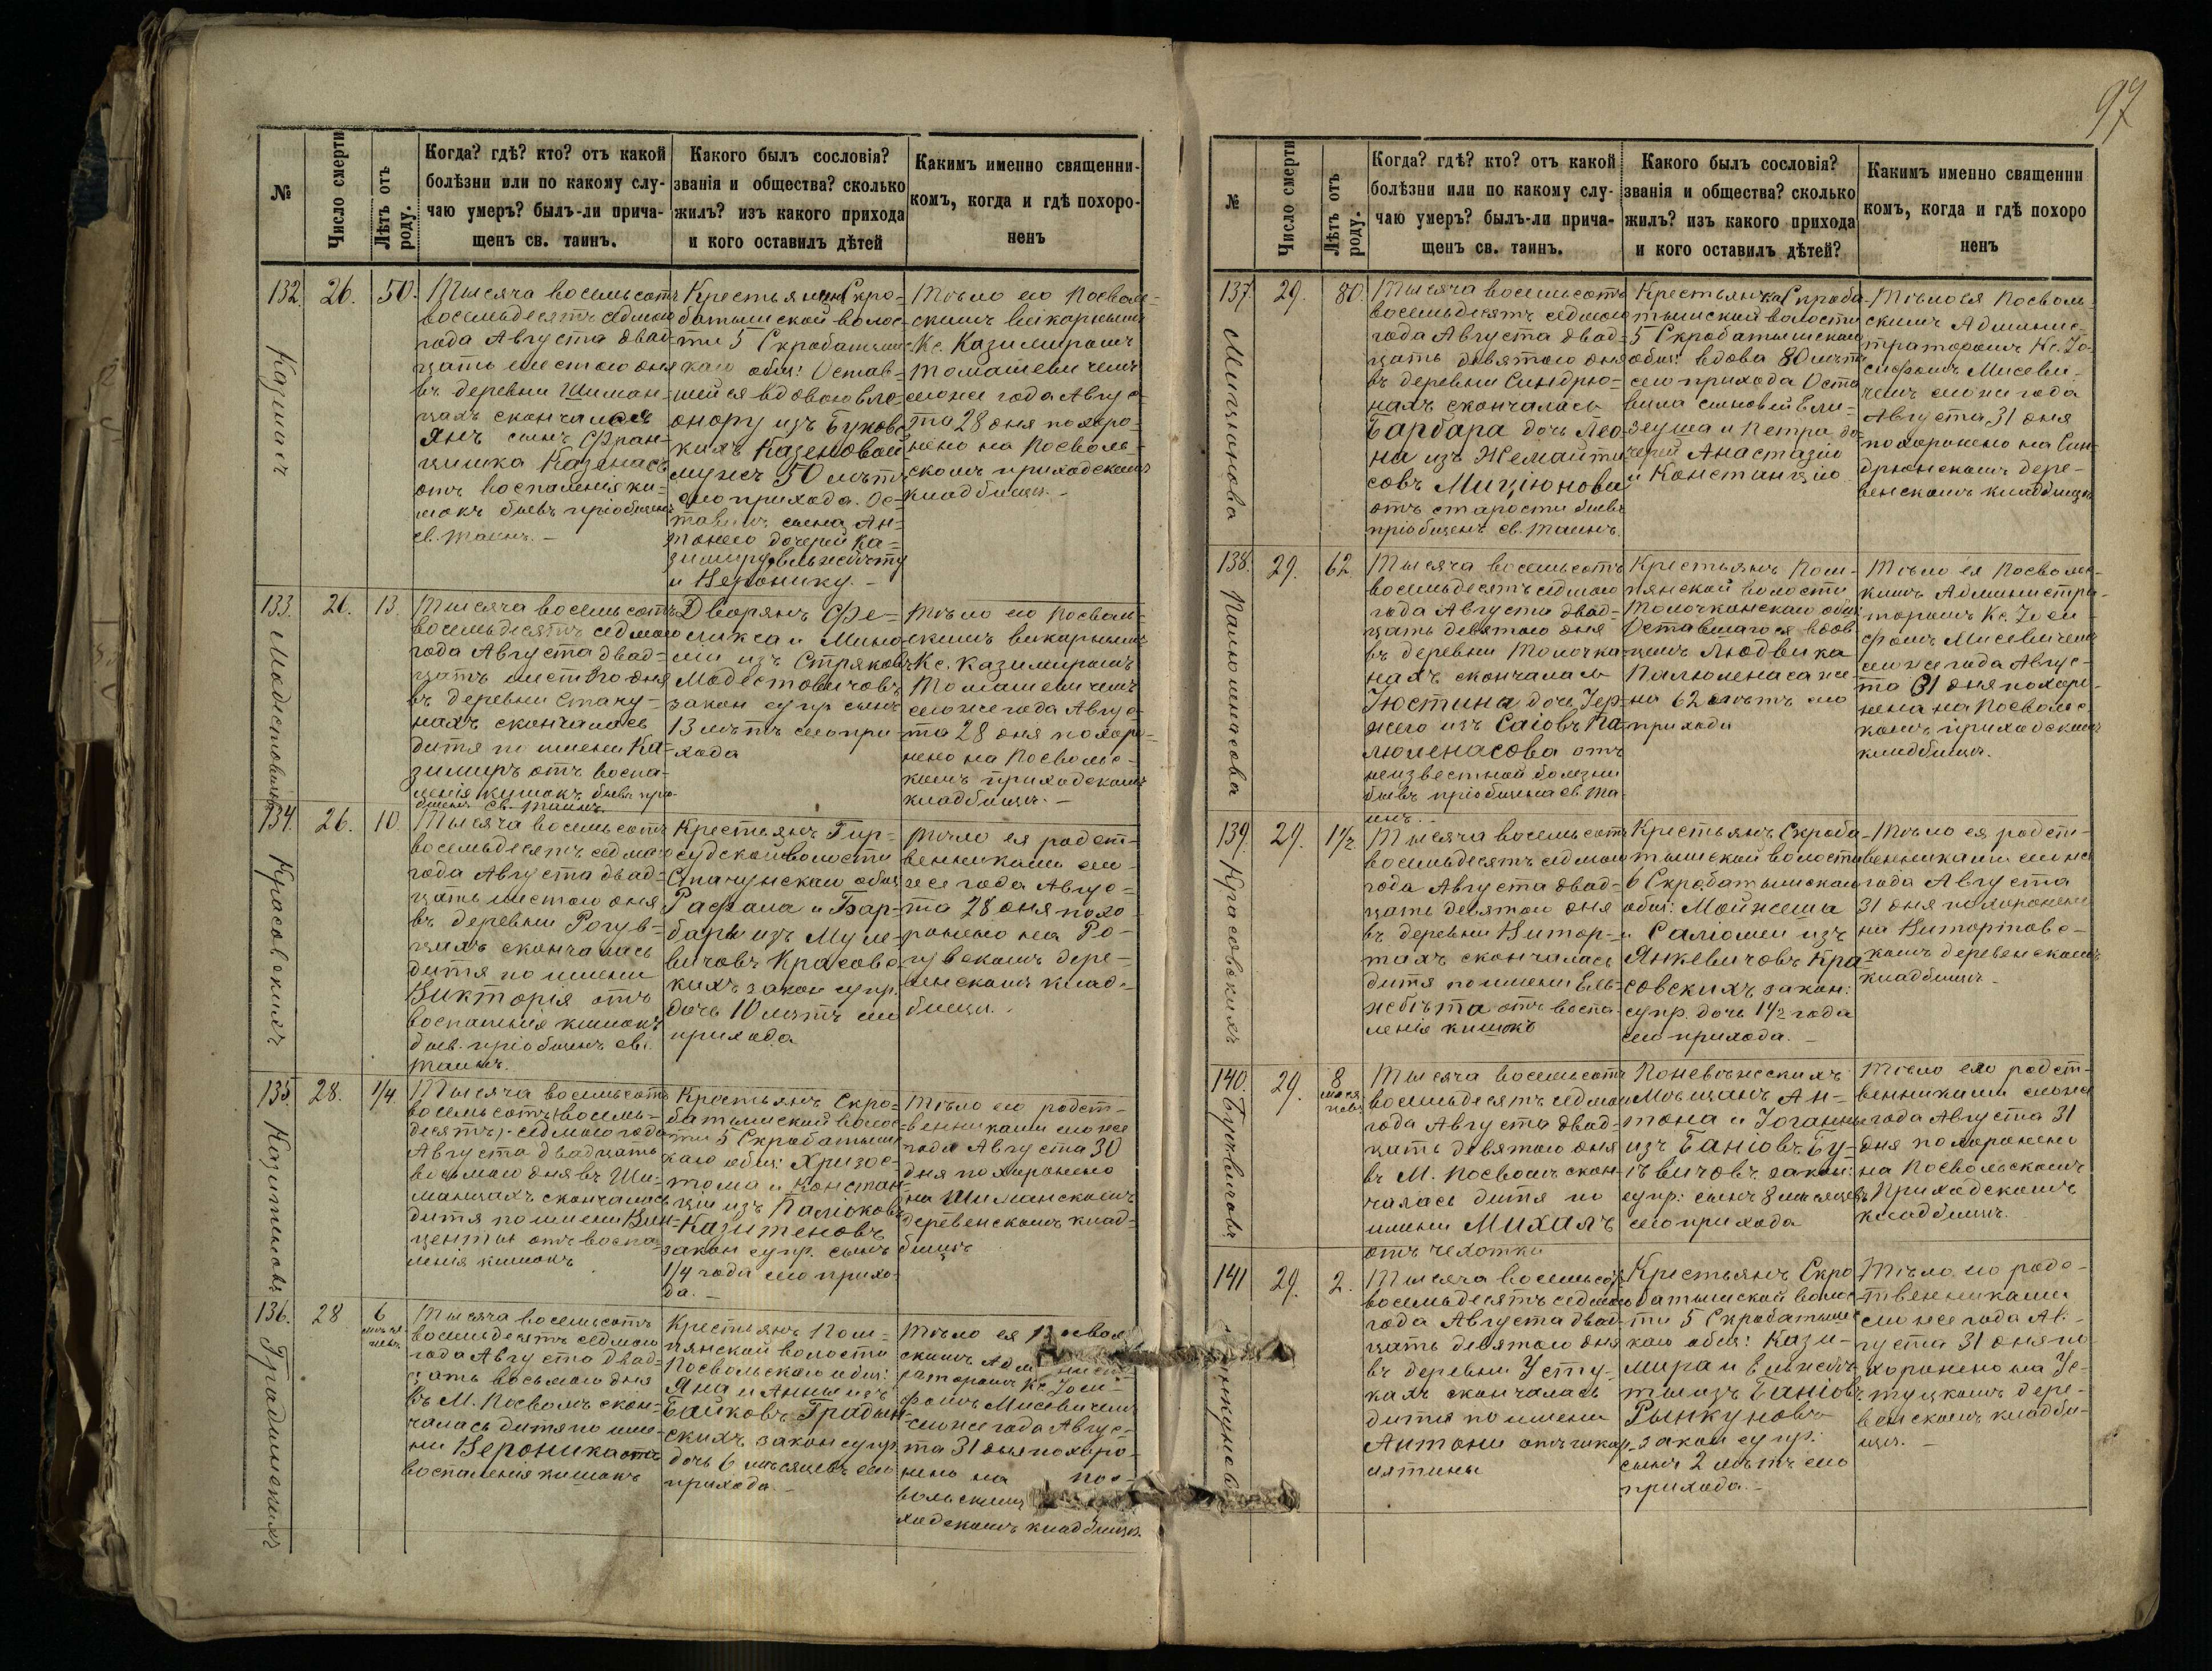 97
№
Число смерти
Лѣтъ отъ роду.
Когда? гдѣ? кто? отъ какой
болѣзни или по какому слу-
чаю умеръ? былъ-ли прича-
щенъ св. таинъ.
Какого былъ сословія?
званія и общества? сколько
жилъ? изъ какого прихода
и кого оставилъ дѣтей
Какимъ именно священни-
комъ, когда и гдѣ похоро-
ненъ
132. 26. 50.
Тысяча восемьсотъ
восемьдесятъ седмого
года Августа двад-
цать шестого дня
въ деревни Шиман-
цахъ скончался
Янъ сынъ Фран-
цишка Казенасъ
отъ воспаленія ки-
шокъ бывъ пріобщенъ
св. таинъ. –
Крестьянинъ Скро-
батышской волос-
ти 5 Скробатышс-
каго общ: Остав-
шейся вдовою Эле-
онору изъ Буковс-
кихъ Казеновой
мужъ 50 лѣтъ
сего прихода. Ос-
тавилъ сына Ан-
тонего дочерей Ка-
зимиру, Эльжбѣту
и Веронику. –
Тѣло его Посволь-
скимъ викарнымъ
Кс. Казимиромъ
Томашевичемъ
сегоже года Авгус-
та 28 дня похоро-
нено на Посволь-
скомъ приходскомъ
кладбищѣ. –
133. 26. 13.
Модестовичовъ
Тысяча восемьсотъ
восемьдесятъ седмого
года Августа двад-
цать шестого дня
въ деревни Стачу-
нахъ скончалась
дитя по имени Ка-
зимиръ отъ воспа-
ленія кишокъ бывъ прі-
общенъ св. таинъ.
Дворянъ Фе-
ликса и Мино-
ліи изъ Стряковъ
Модестовичовъ
закон супр сынъ
13 лѣтъ сего при-
хода
Тѣло его Посволь-
скимъ викарнымъ
Кс. Казимиромъ
Томашевичемъ
сегоже года Авгус-
та 28 дня похоро-
нено на Посволь-
скомъ приходскомъ
кладбищѣ. –
134. 26. 10.
Красовскихъ
Тысяча восемьсотъ
восемьдесятъ седмаго
года Августа двад-
цать шестого дня
въ деревни Рогув-
цихъ скончалась
дитя по имени
Викторія отъ
воспаленія кишокъ
быв. пріобщенъ св.
таинъ.
Крестьянъ Гир-
судской волости
Стачунскаго общ
Рафала и Бар-
бары изъ Муле-
вичовъ Красовс-
кихъ закон супр.
дочь 10 лѣтъ сего
прихода
Тѣло ея родст-
венниками сего-
же года Авгус-
та 28 дня похо-
ронено на Ро-
гувскомъ дере-
венскомъ клад-
бищи.
135. 28. 1/4.
Тысяча восемьсотъ
восемьсотъ (восемь-
десятъ) седмого года
Августа двадцать
восьмого дня въ Ши-
манцахъ скончалась
дитя по имени Вин-
центы отъ воспа-
ленія кишокъ
Крестьянъ Скро-
батышской волос-
ти 5 Скробатышс-
каго общ: Хризос-
тома и Констан-
ціи изъ Палюковъ
Казитеновъ
закон супр. сынъ
1/4 года сего прихо-
да. –
Тѣло его родст-
венниками сегоже
года Августа 30
дня похоронено
на Шиманскомъ
деревенскомъ клад-
бищѣ
136. 28 6
мѣся-
цевъ
Градинскихъ
Тысяча восемьсотъ
восемьдесятъ седмого
года Августа двад-
цать восьмого дня
въ М. Посволѣ скон-
чалась дитя по име-
ни Вероника отъ
воспаленія кишокъ
Крестьянъ Пом-
пянской волости
Посвольскаго общ:
Яна и Анны изъ
Байковъ Градын-
скихъ закон супр
дочь 6 мѣсяцевъ сего
прихода. –
Тѣло ея Посволь
скимъ Адм
раторомъ Кс. Іоси-
фомъ Мисевичемъ
сегоже года Авгус-
та 31 дня похоро-
нено на Пос-
вольскимъ
ходскомъ кладбищѣ.
№
Число смерти
Лѣтъ отъ роду.
Когда? гдѣ? кто? отъ какой
болѣзни или по какому слу-
чаю умеръ? былъ-ли прича-
щенъ св. таинъ.
Какого былъ сословія?
званія и общества? сколько
жилъ? изъ какого прихода
и кого оставилъ дѣтей?
Какимъ именно священни
комъ, когда и гдѣ похоро
ненъ
137. 29. 80.
Мицюнова
Тысяча восемьсотъ
восемьдесятъ седмого
года Августа двад-
цать девятого дня
въ деревни Синдрю-
нахъ скончалась
Барбара дочь Лео-
на изъ Жемайти-
совъ Миціюнова
отъ старости бывъ
пріобщенъ св. таинъ.
Крестьянка Скроба-
тышской волости
5 Скробатышскаго
общ: вдова 80 лѣтъ
сего прихода Оста-
вила сыновей Ели-
зеуша и Петра до-
черей Анастазію
и Констанцію
Тѣло ея Посволь-
скимъ Админис-
траторомъ Кс. Іо-
сифомъ Мисеви-
чемъ сегоже года
Августа 31 дня
похоронено на Син-
дрюнскомъ дере-
венскомъ кладбищѣ
138. 29. 62.
Палюменасова
Тысяча восемьсотъ
восемьдесятъ седмого
года Августа двад-
цать девятого дня
въ деревни Толочка-
нахъ скончалась
Юстина дочь Іер-
жего изъ Саговъ Па-
люменасова отъ
неизвестной болезни
бывъ пріобщена св. та-
инъ. –
Крестьянъ Пом-
пянской волости
Толочканскаго общ
Оставшагося вдов-
цемъ Людвика
Палюменаса же-
на 62 лѣтъ сего
прихода
Тѣло ея Посволь-
скимъ Администра-
торомъ Кс. Іоси-
фомъ Мисевичемъ
сегоже года Авгус-
та 31 дня похоро-
нена на Посвольс-
комъ приходскомъ
кладбищѣ.
139. 29. 1 1/2
Красовскихъ
Тысяча восемьсотъ
восемьдесятъ седмого
года Августа двад-
цать девятого дня
въ деревни Витор-
тахъ скончалась
дитя по имени Ель-
жбѣта отъ воспа-
ленія кишокъ
Крестьянъ Скроба-
тышской волости
6 Скробатышскаго
общ: Мойжеша
и Саломеи изъ
Янкевичовъ Кра-
совскихъ закон:
супр. дочь 1 1/2 года
сего прихода. –
Тѣло ея родст-
венниками сегоже
года Августа
31 дня похоронено
на Виторговс-
комъ деревенскомъ
кладбищѣ –
140. 29. 8
мѣся-
цевъ
Тысяча восемьсотъ
восемьдесятъ седмого
года Августа двад-
цать девятого дня
въ М. Посволѣ скон-
чалась дитя по
имени Михалъ
отъ чехотки
Поневѣжскихъ
Мѣщанъ Ан-
тона и Іоганны
изъ Баніовъ Бу-
гвичовъ закон:
супр: сынъ 8 мѣсяцевъ
сего прихода
Тѣло его родст-
венниками сегоже
года Августа 31
дня похоронено
на Посвольскомъ
Приходскомъ
кладбищѣ.
141 29. 2.
Тысяча восемьсотъ
восемьдесятъ седмого
года Августа двад-
цать девятого дня
въ деревни Усту-
кахъ скончалась
дитя по имени
Антони отъ
Крестьянъ Скро-
батышской волос-
ти 5 Скробатышс-
каго общ: Кази-
мира и Ельжбѣ-
ты изъ Баніовъ
Рынкуновъ
закон супр:
сынъ 2 лѣтъ сего
прихода. –
Тѣло его родс-
твенниками
сегоже года Ав-
густа 31 дня по-
хоронено на Ус-
туцкомъ дере-
венскомъ кладби-
щѣ. –